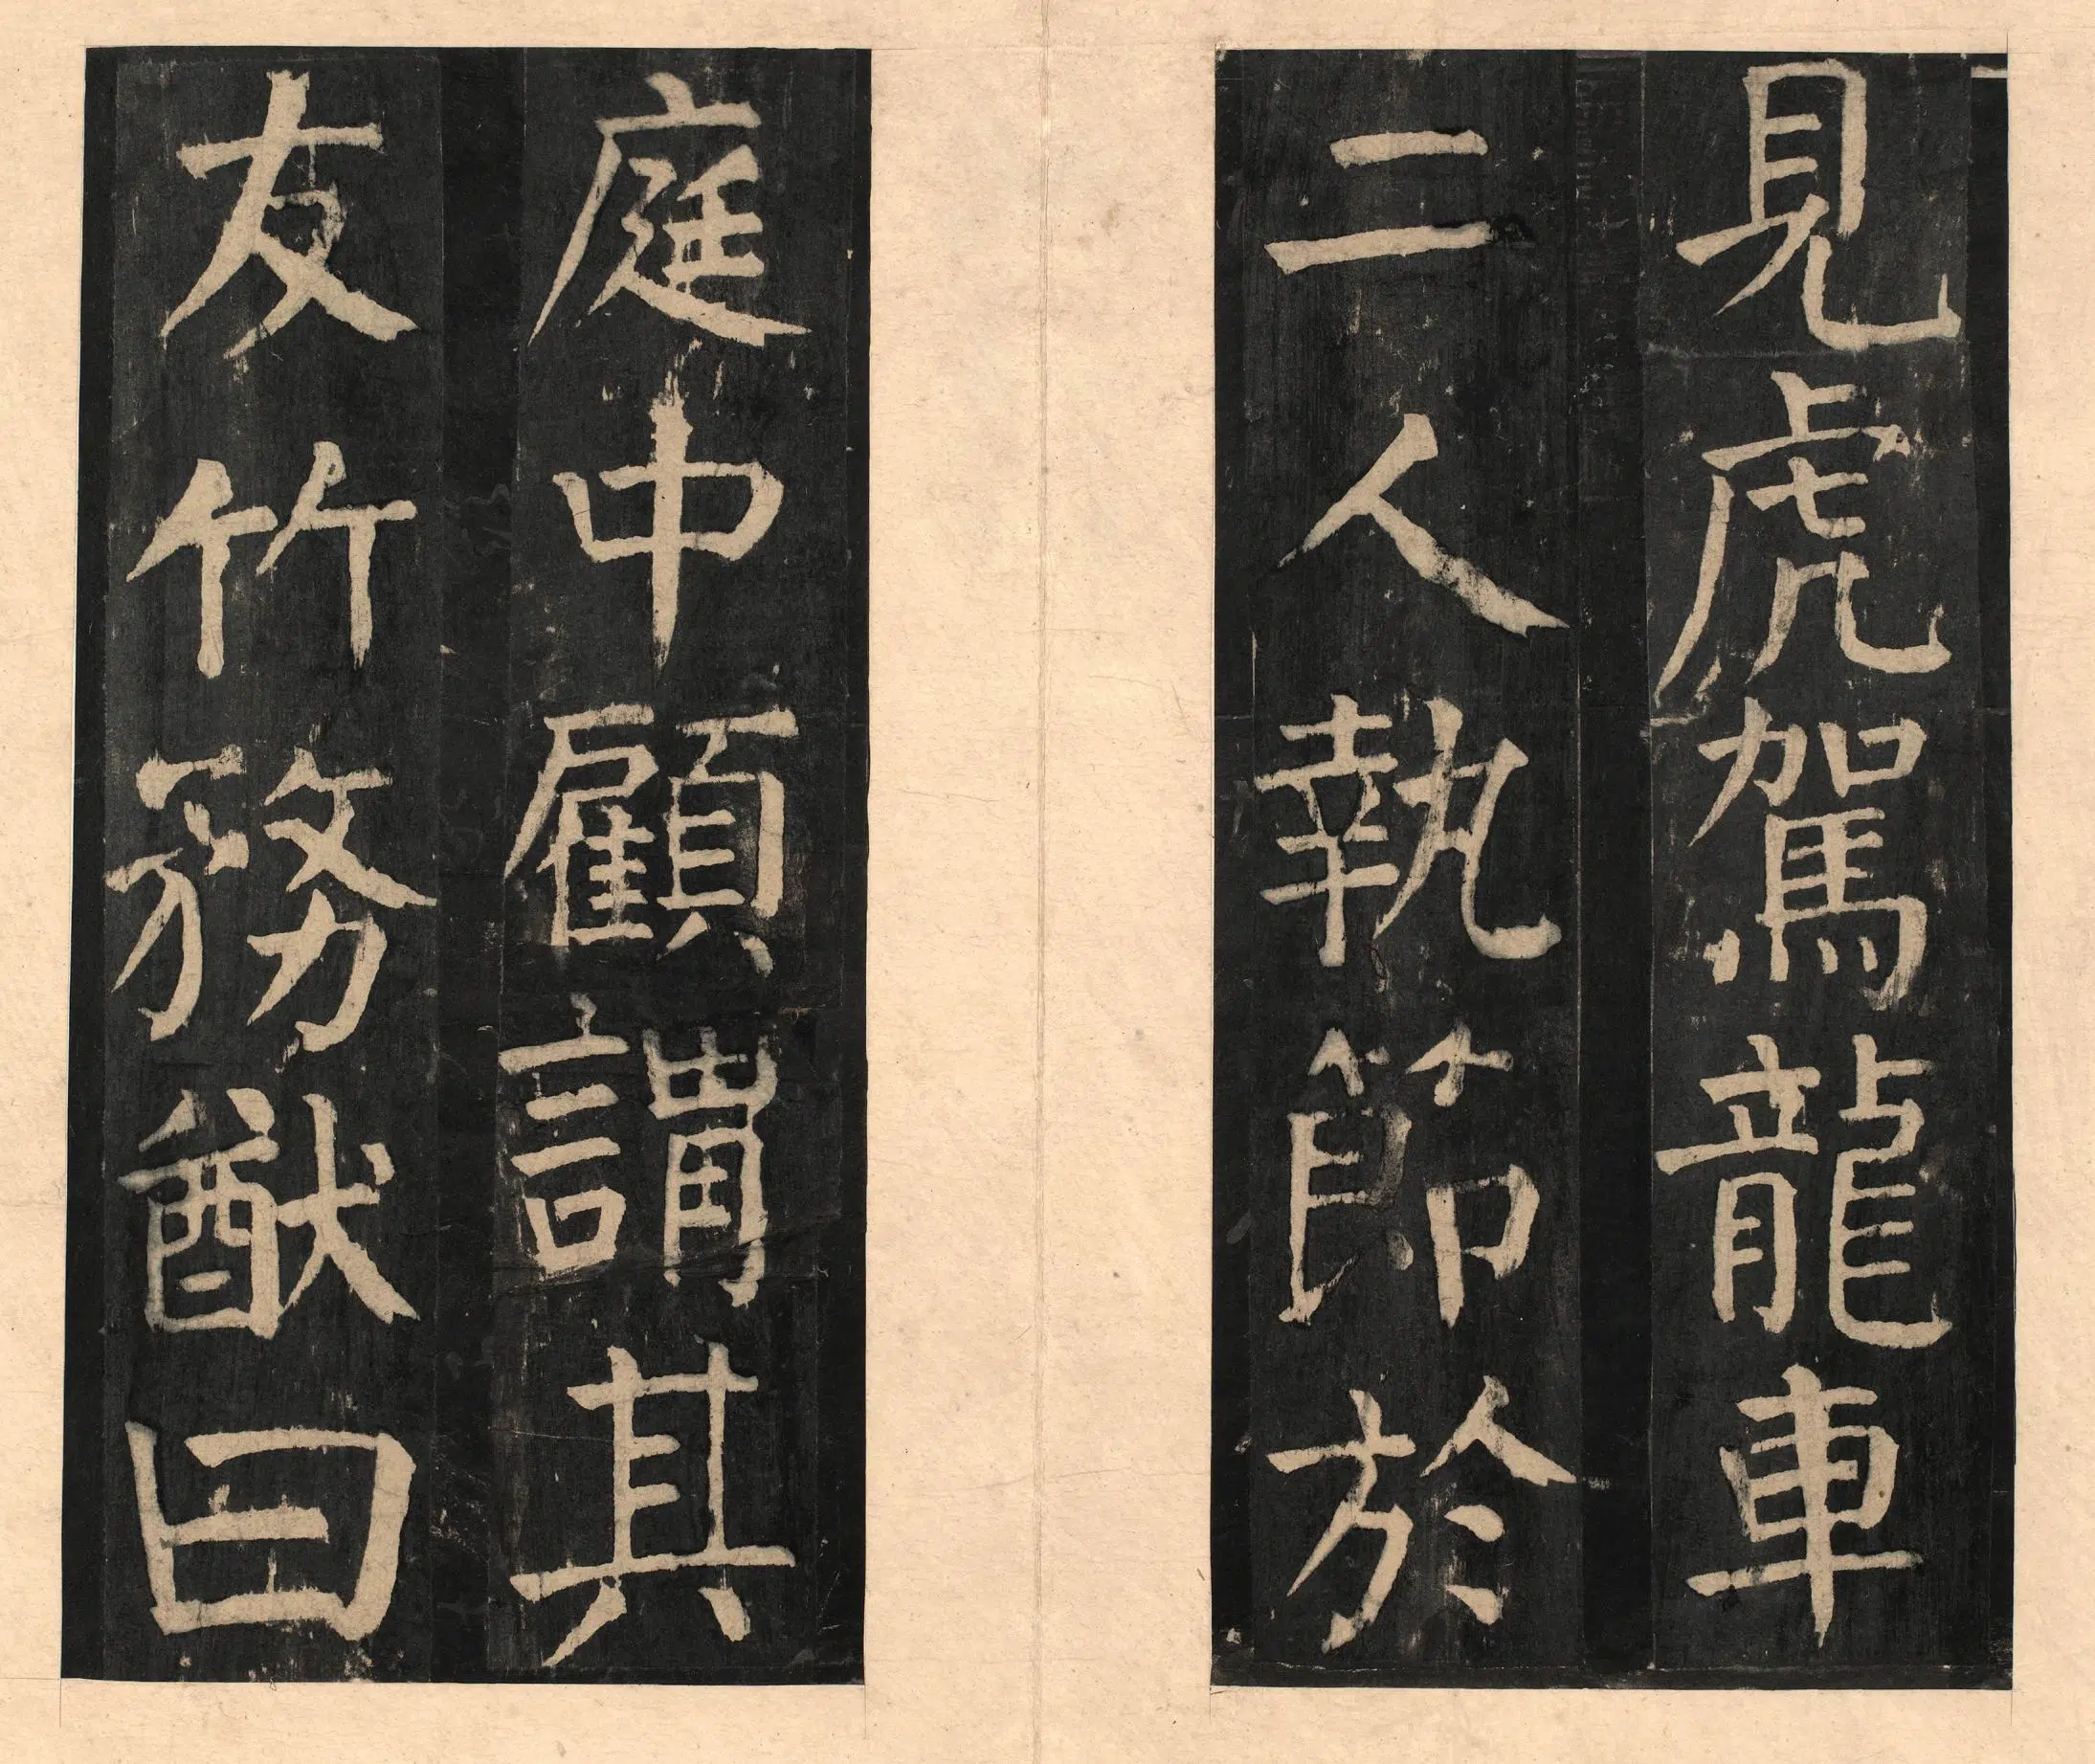 見虎駕龍車
二人執節於
庭中顧謂其
友竹務猷曰